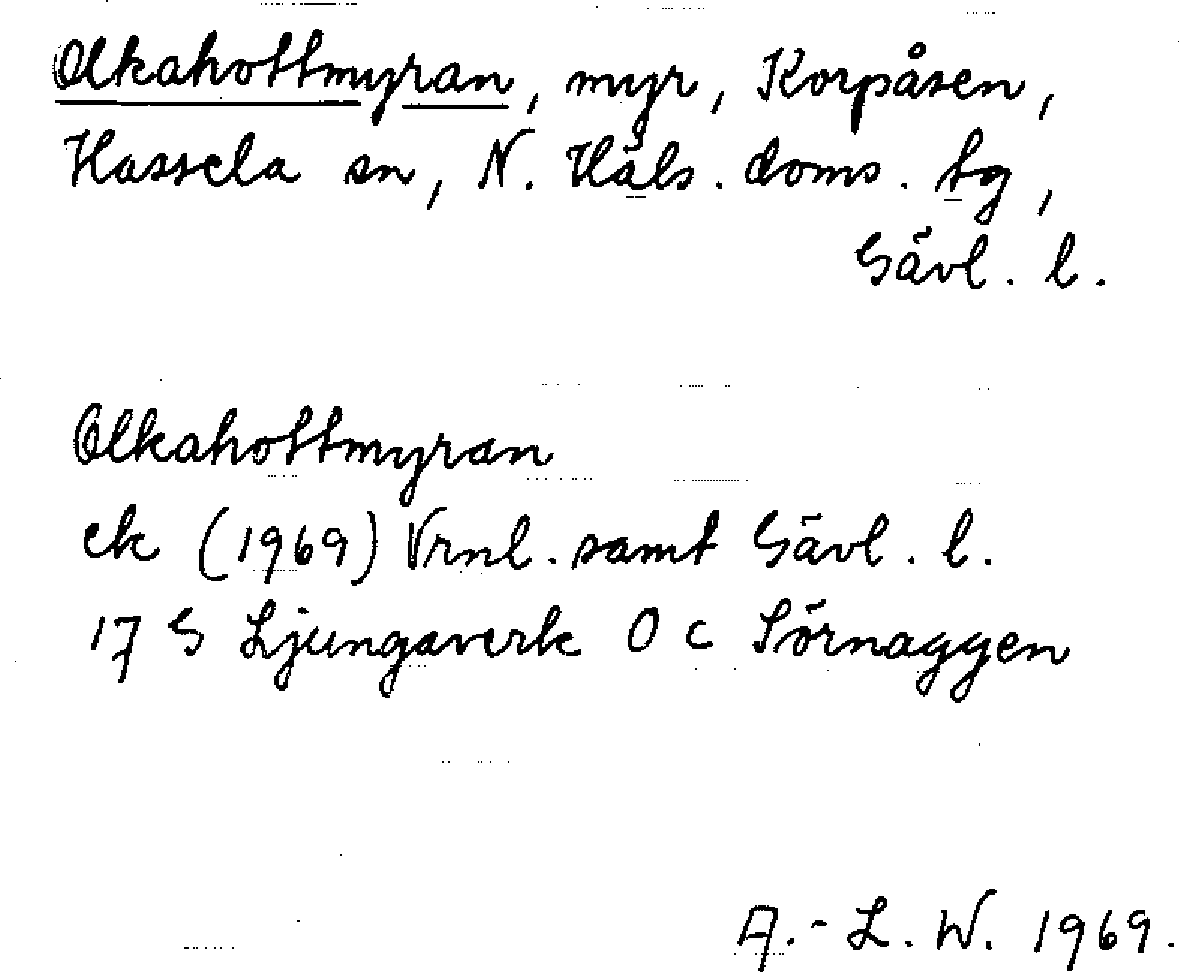 Olkahottmyran, myr, Korpåsen,
Hassela sn, N. Häls. doms. tg,
Gävl. l.
Olkahottmyran
ek (1969) Vrnl. samt Gävl. l.
17 G Ljungaverk O c Sörnaggen
A.-L. W. 1969.